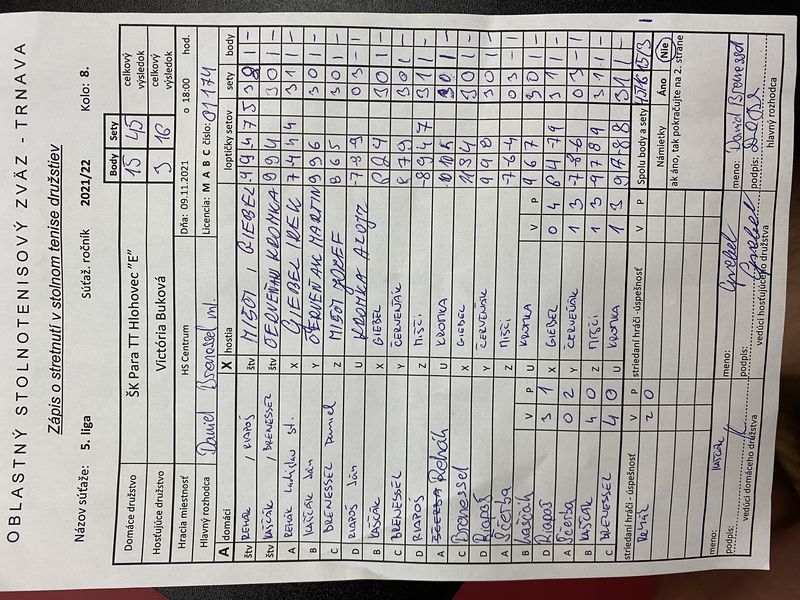 OBLASTNÝ STOLNOTENISOVÝ ZVÄZ - TRNAVA
Zápis o stretnutí v stolnom tenise družstiev
Názov súťaže: 5. liga Súťaž. ročník 2021/22 Kolo: 8.
Body Sety
Domáce družstvo ŠK Para TT Hlohovec "E" 15 45 celkový výsledok
Hosťujúce družstvo Victória Buková 3 16 celkový výsledok
Hracia miestnosť HS Centrum Dňa: 09.11.2021 o 18:00 hod.
Hlavný rozhodca Daniel Brenessel ml. Licencia: M A B C číslo: 01174
A domáci X hostia loptičky setov sety body
štv REHÁK / RIAPOŠ štv MIŠOT / GIEBEL
štv KAŠČÁK / BRENESSEL štv ČERVEŇÁK KROMKA 9 9 4 3 0 1 -
A REHÁK Ladislav st. X GIEBEL IREK 7 4 4 4 3 1 1 -
B KAŠČÁK Ján Y ČERVEŇÁK MARTIN 9 9 6 3 0 1 -
C BRENESSEL Daniel Z MIŠOT JOZEF 8 6 5 3 0 1 -
D RIAPOŠ Ján U KROMKA ALOJZ -7 -8 -9 0 3 - 1
B KAŠČÁK X GIEBEL 3 0 1 -
C BRENESSEL Y ČERVEŇÁK 6 7 9 3 0 1 -
D RIAPOŠ Z -8 9 4 7 3 1 1 -
A Rehák U KROMKA 3 0 1 -
C Brenessel X GIEBEL 11 3 4 3 0 1 -
D Riapoš Y ČERVEŇÁK 3 0 1 -
A Ščerba Z -7 -6 -4 0 3 - 1
B Kaščák V P U KROMKA V P 9 6 7 3 0 1 -
D Riapoš 3 1 X GIEBEL 0 4 6 4 -7 9 3 1 1 -
A Ščerba 0 2 Y ČERVEŇÁK 1 3 -7 -8 -6 0 3 - 1
B Kaščák 4 0 Z 1 3 -9 7 8 9 3 1 1 -
C BRENESSEL 4 0 U KROMKA 1 3 9 7 -8 8 3 1 1 -
striedaní hráči - úspešnosť V P striedaní hráči - úspešnosť V P Spolu body a sety 45 16 15 3
Rehák 2 0 Námietky Áno Nie
ak áno, tak pokračujte na 2. strane
meno: Kaščák meno: Giebel meno: David Brenessel
podpis: podpis: Giebel podpis:
vedúci domáceho družstva vedúci hosťujúceho družstva hlavný rozhodca